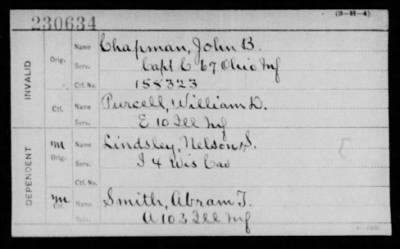 (3-H-4)
230634
INVALID
Orig. Name Chapman, John B.
Serv. Capt C 67 Ohio Inf
Ctf. No. 158323
Ctf. Name Purcell, William D.
Serv. E 10 Ill Inf
DEPENDENT
m Orig. Name Lindsley, Nelson S.
Serv. I 4 Wis Cav
Ctf. No.
m Ctf. Name Smith, Abram T.
Serv. A 103 Ill Inf